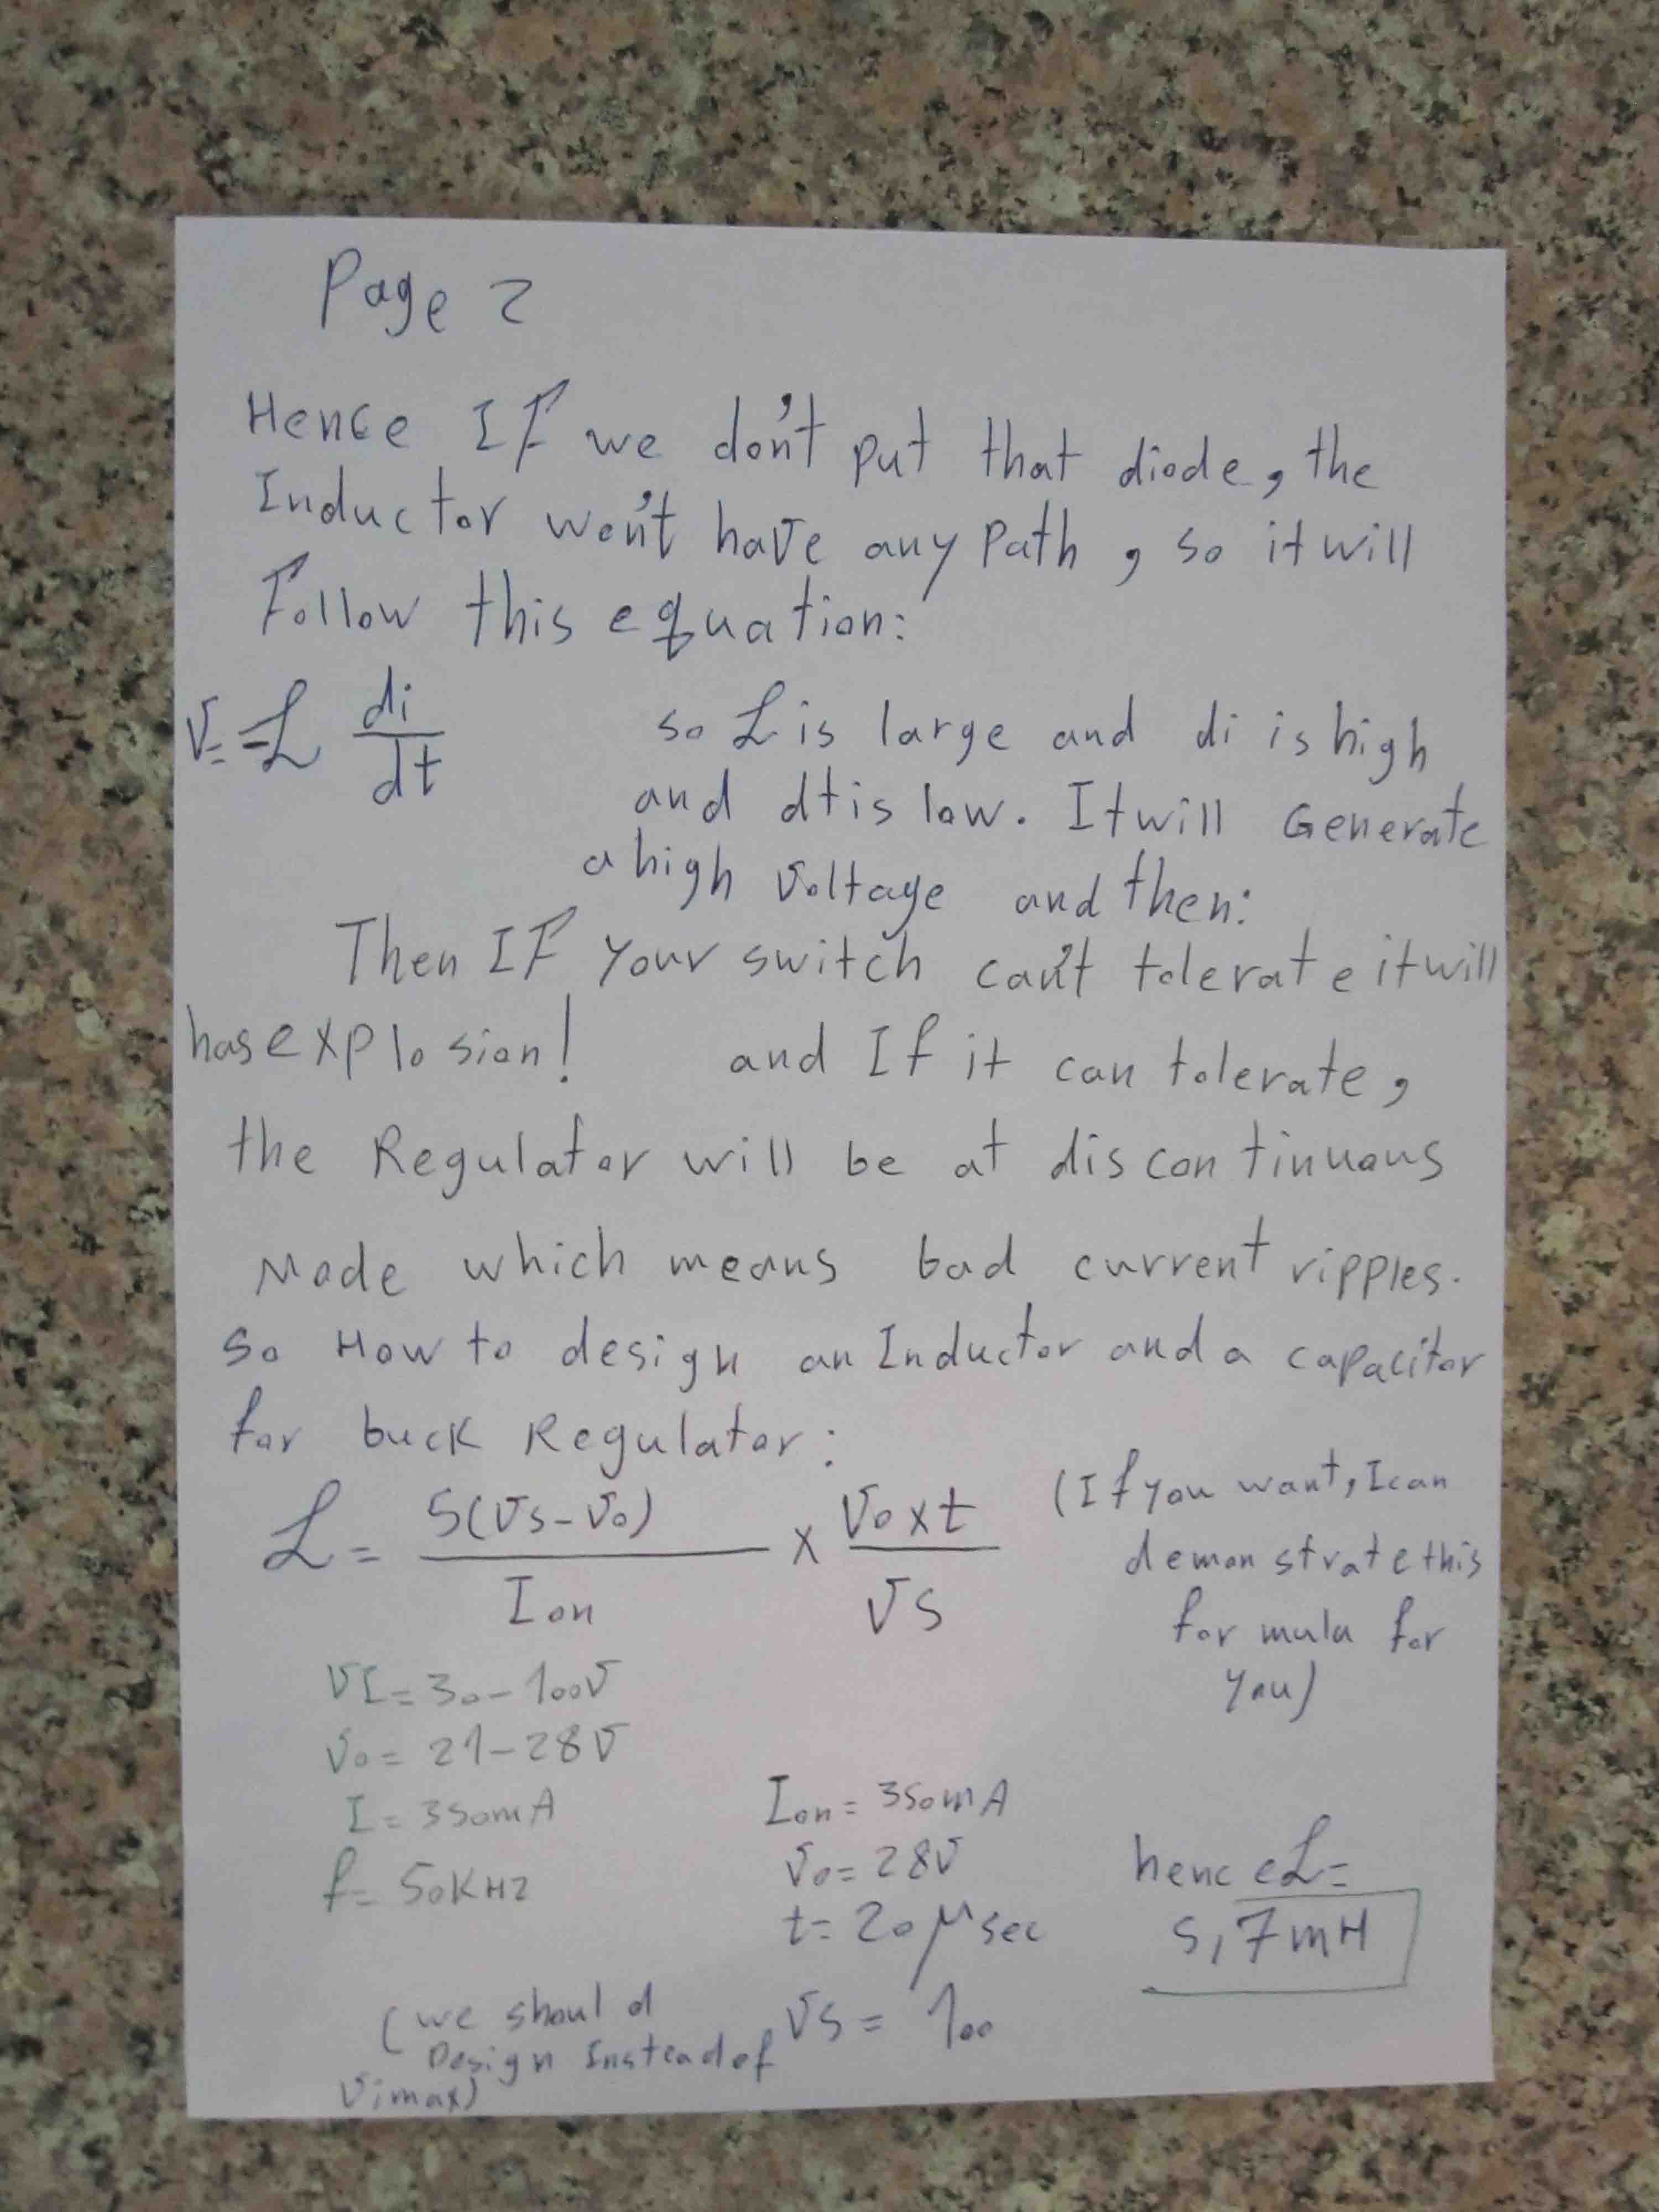 Page 2
Hence IF we don't put that diode, the
Inductor won't have any Path, so it will
Follow this equation:
V = L di/dt
so L is large and di is high
and dt is low. It will Generate
a high voltage and then:
Then IF your switch can't tolerate it will
has explosion! and If it can tolerate,
the Regulator will be at discontinuous
Mode which means bad current ripples.
So How to design an Inductor and a capacitor
for buck Regulator:
L = 5(Vs-Vo)/Ion x Vo x t/Vs
(If you want, I can
demonstrate this
formula for
you)
VI = 30-100V
Vo = 21-28V
I = 350mA
f = 50KHz
Ion = 350mA
Vo = 28V
t = 20 μsec
Vs = 100
hence L =
5,7mH
(we should
Design Instead of
Vimax)